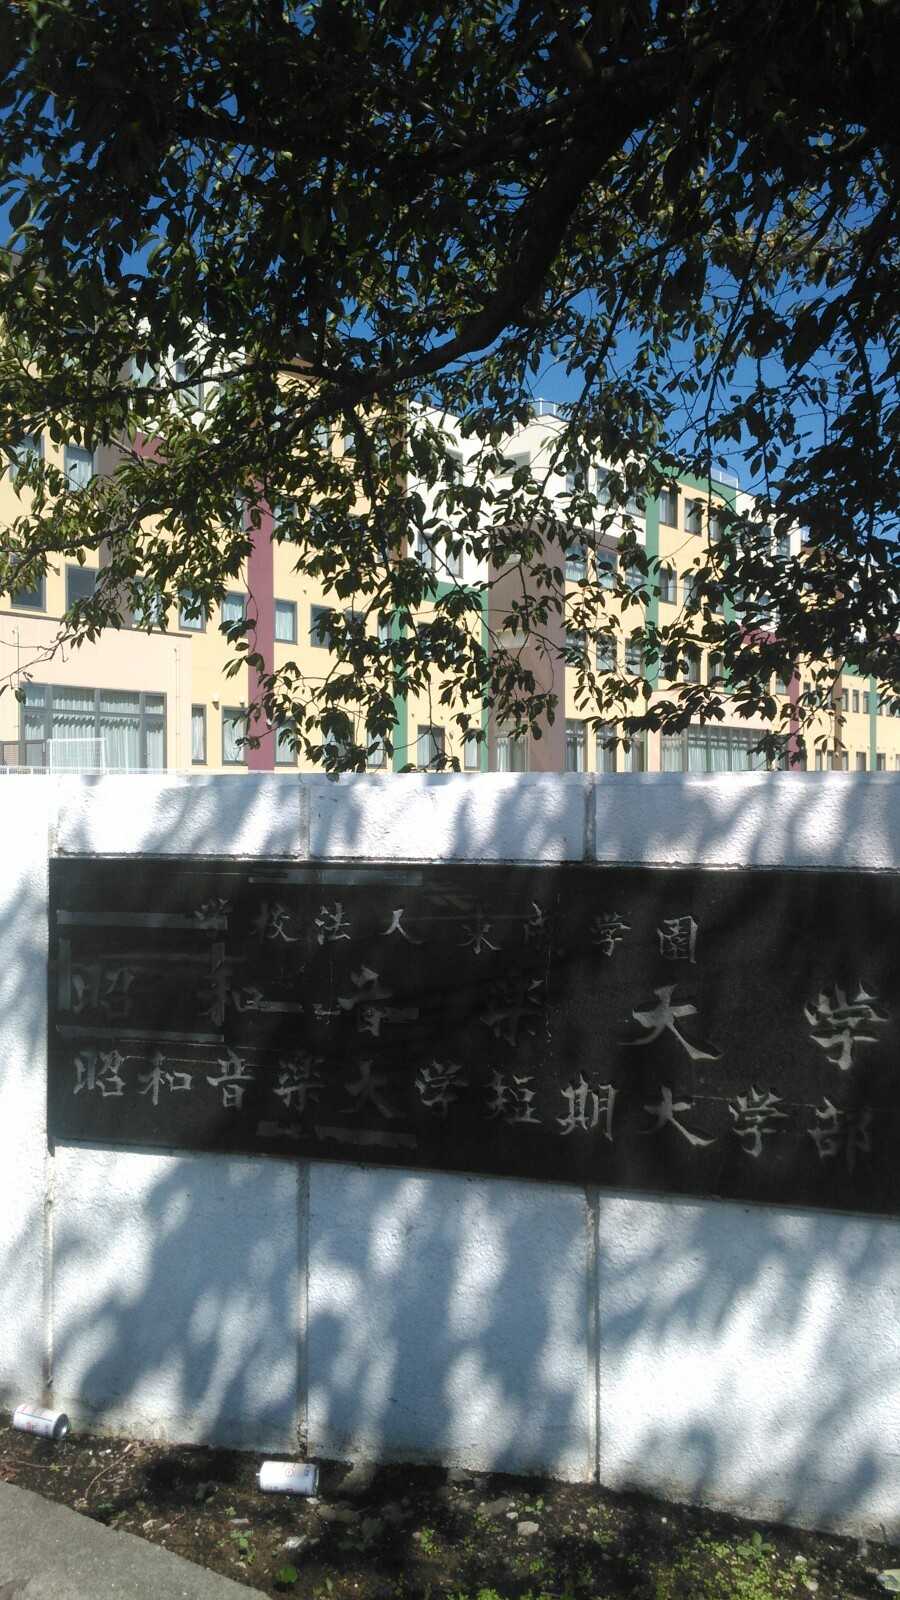 学校法人東成学園
昭和音楽大学
昭和音楽大学短期大学部